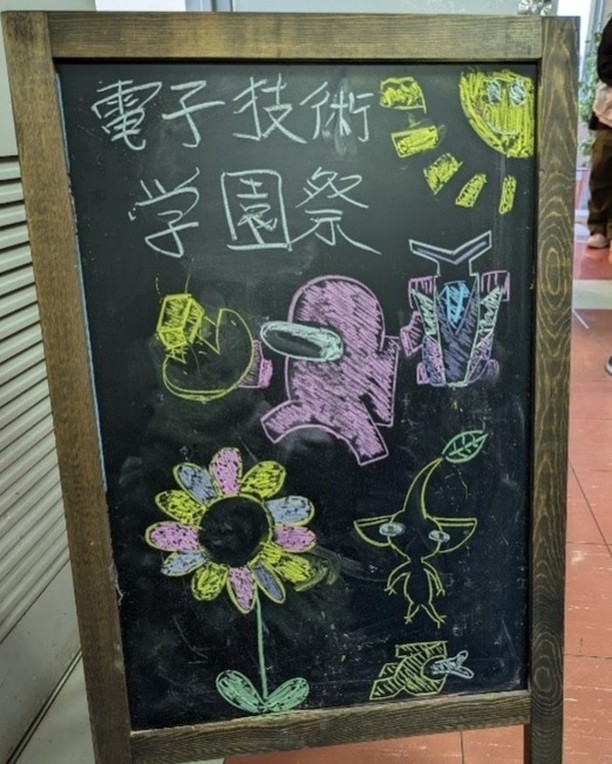 電子技術
学園祭